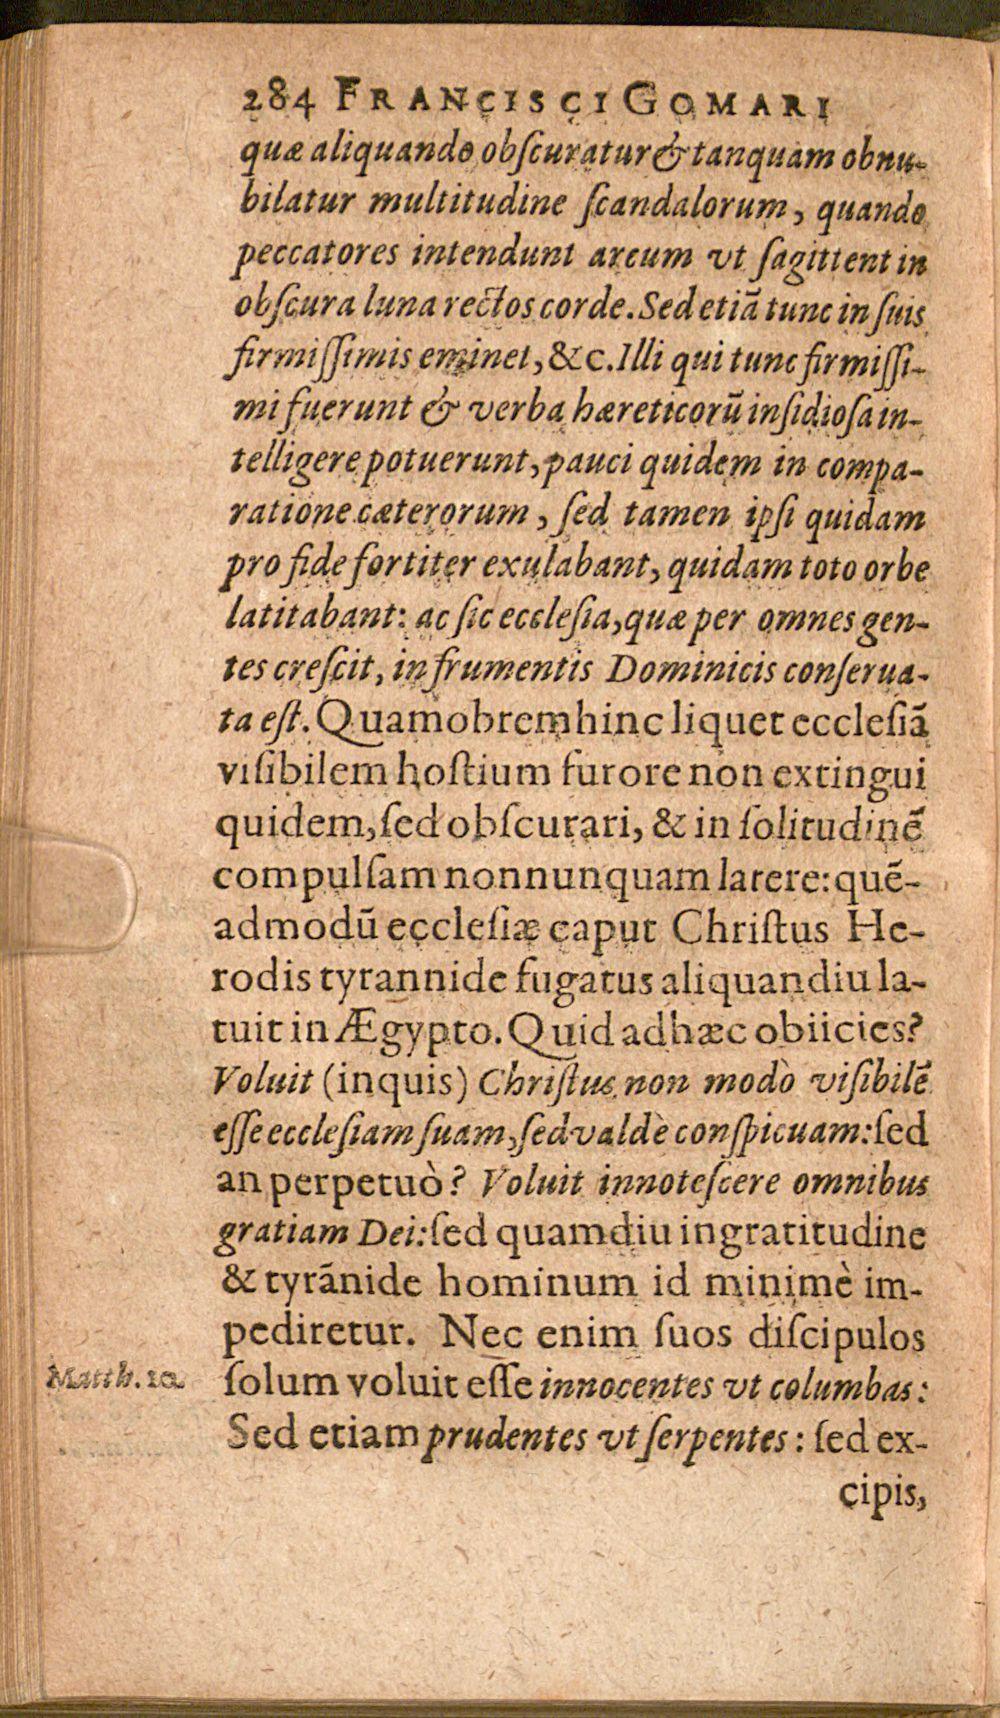 284 FRANCISCI GOMARI
quæ aliquando obſcuratur & tanquam obnu-
bilatur multitudine ſcandalorum, quando
peccatores intendunt arcum vt ſagittent in
obſcura luna rectos corde. Sed etiã tunc in ſuis
firmiſſimis eminet, &c. Illi qui tunc firmiſſi-
mi fuerunt & verba hæreticorũ inſidioſa in-
telligere potuerunt, pauci quidem in compa-
ratione cæterorum, ſed tamen ipſi quidam
pro fide fortiter exulabant, quidam toto orbe
latitabant: ac ſic eccleſia, quæ per omnes gen-
tes creſcit, in frumentis Dominicis conſerua-
ta eſt. Quamobrem hinc liquet eccleſiã
viſibilem hoſtium furore non extingui
quidem, ſed obſcurari, & in ſolitudinẽ
compulſam nonnunquam latere: quẽ-
admodũ eccleſiæ caput Chriſtus He-
rodis tyrannide fugatus aliquandiu la-
tuit in Ægypto. Quid ad hæc obiicies?
Voluit (inquis) Chriſtus non modò viſibilẽ
eſſe eccleſiam ſuam, ſed valdè conſpicuam: ſed
an perpetuò? Voluit innoteſcere omnibus
gratiam Dei: ſed quamdiu ingratitudine
& tyrãnide hominum id minimè im-
pediretur. Nec enim ſuos diſcipulos
Matth. 10. ſolum voluit eſſe innocentes vt columbas:
Sed etiam prudentes vt ſerpentes: ſed ex-
cipis,